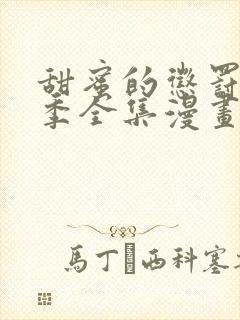 甜蜜的懲罰
季全集漫畫
馬丁�西科塞